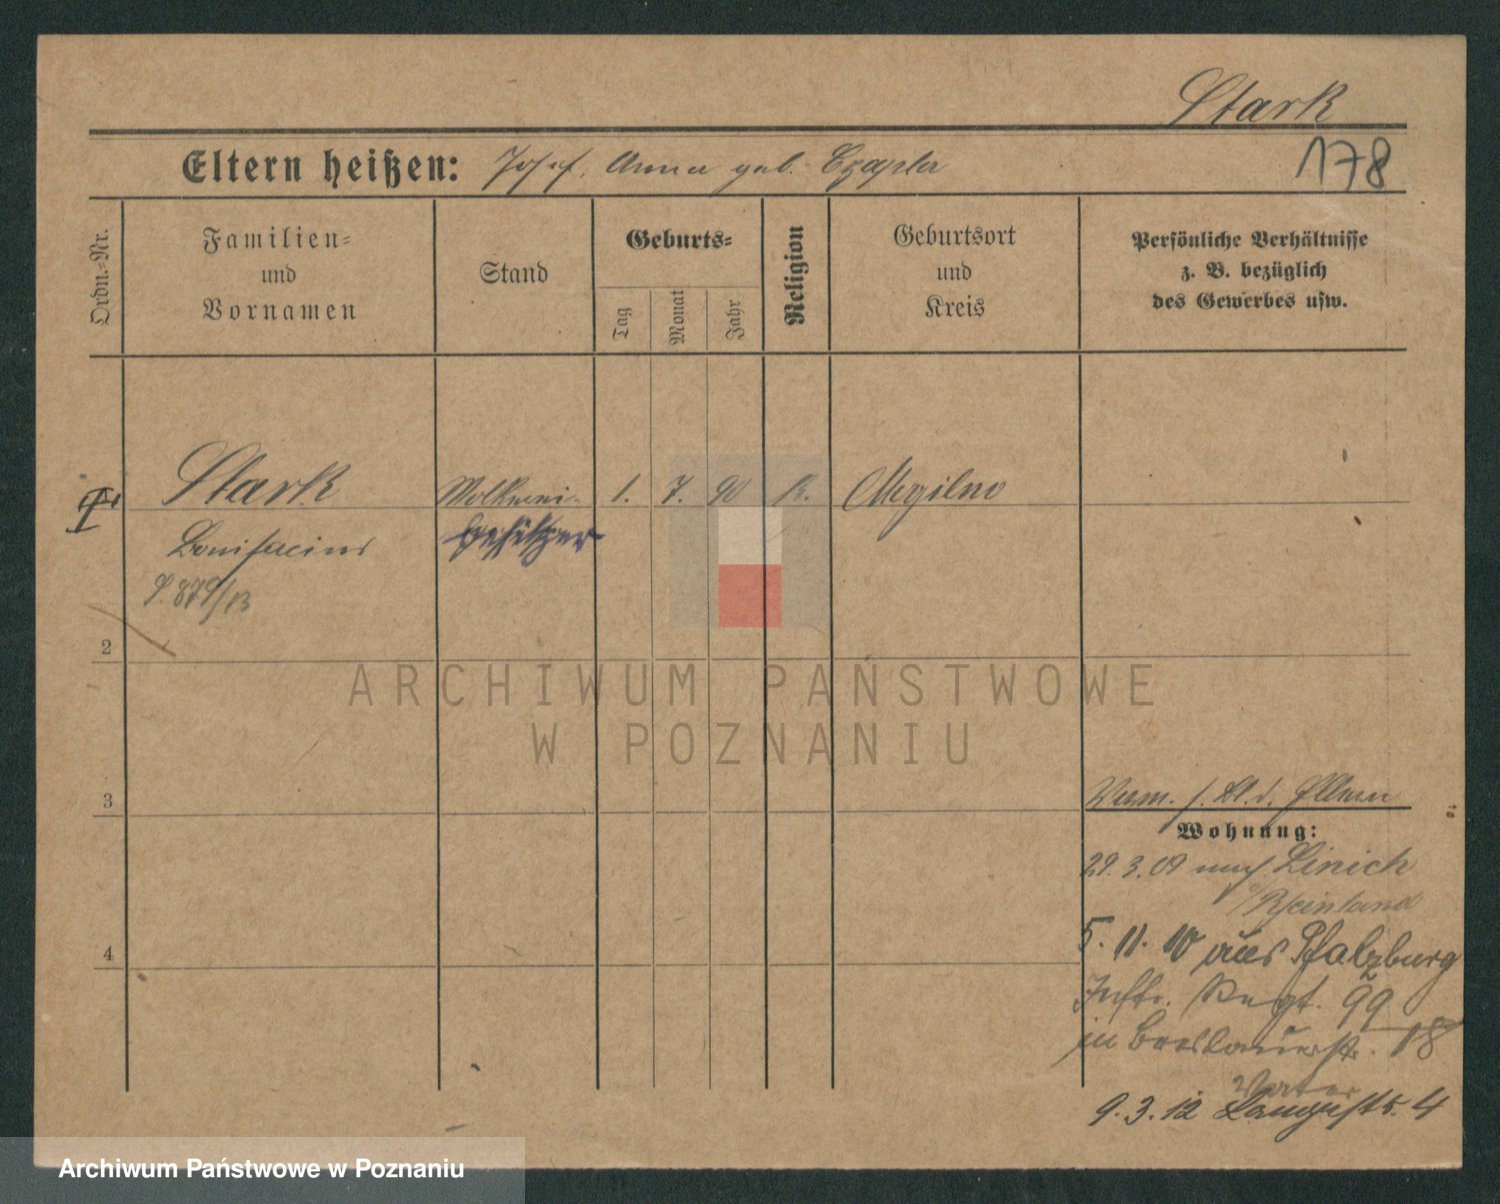 Stark
178
Eltern heißen: Josef, Anna geb. Czapla
Ordn.-Nr.
Familien-
und
Vornamen
Stand
Geburts-
Tag
Monat
Jahr
Religion
Geburtsort
und
Kreis
Persönliche Verhältnisse
z. B. bezüglich
des Gewerbes usw.
Stark
Molkerei-
1. 7. 90
k.
Mogilno
Bonifacius
besitzer
2
3
4
Wohnung:
29. 3. 09 nach Linich
Rheinland
5. 11. 10 aus Pfalzburg
Inftr. Regt. 99
in Breslauerstr. 18
Vater
9. 3. 12 Langestr. 4
ARCHIWUM PAŃSTWOWE
W POZNANIU
Archiwum Państwowe w Poznaniu